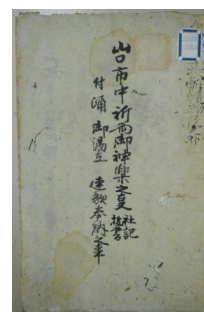 山口市中祈雨御神楽之夏
社記
抜書
付涌 御湯立 連歌奉納之事